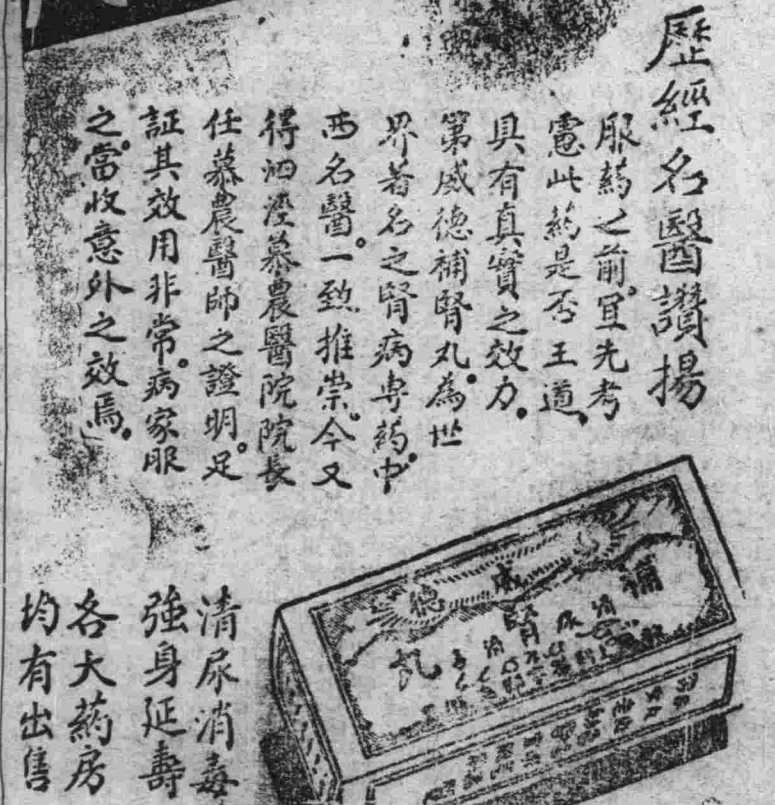 歷經名醫讚揚
服葯之前。宜先考
慮此葯是否王道、
具有真實之效力。
第威德補腎丸。為世
界著名之腎病專葯。中
西名醫。一致推崇。今又
得泗涇慕農醫院院長
任慕農醫師之證明。足
証其效用非常。病家服
之。當收意外之效焉。」
清尿消毒
強身延壽
各大葯房
均有出售
補
腎
丸
威
德